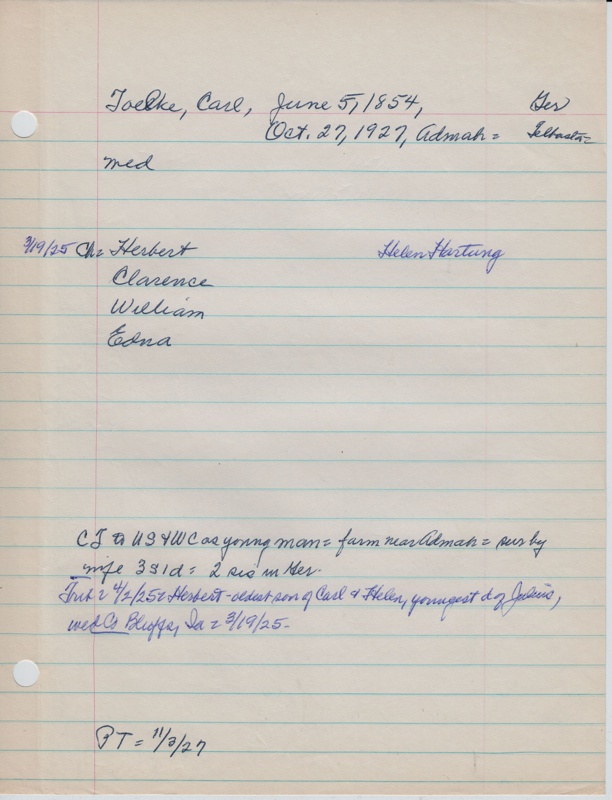 Toelke, Carl, June 5, 1854, Ger
Oct. 27, 1927, Admah =
med
3/19/25 Ch = Herbert Helen Hartung
Clarence
William
Edna
CT to US & WC as young man = farm near Admah = sur by
wife 3 s 1 d = 2 sis in Ger.
4/2/25 = Herbert - oldest son of Carl & Helen, youngest d of Julius,
wed Co Bluffs, Ia = 3/19/25 -
PT = 11/3/27